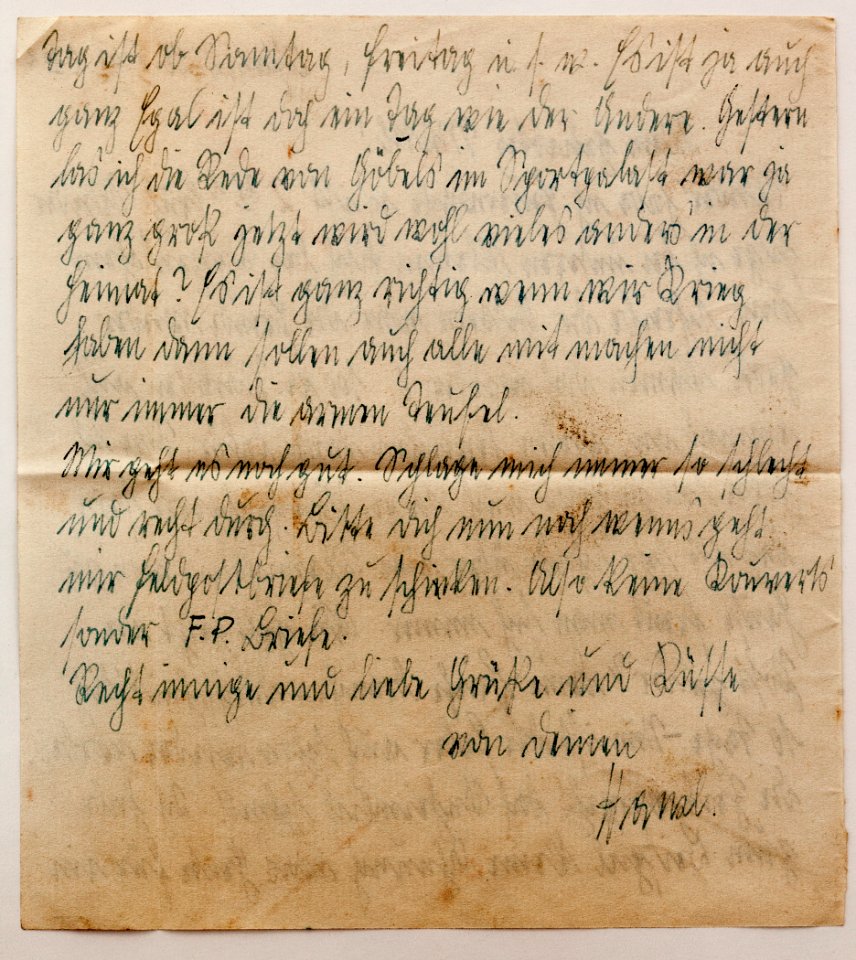 Tag ist ob Samtag, Freitag u. s. w. Es ist ja auch
ganz Egal ist doch ein Tag wie der Andere. Gestern
las ich die Rede von Göbels im Sportpalast war ja
ganz groß jetzt wird wohl vieles anders in der
Heimat? Es ist ganz richtig wenn wir Krieg
haben dann sollen auch alle mit machen nicht
nur immer die armen Teufel.
Mir geht es noch gut. Schlage mich immer so schlecht
und recht durch. Bitte dich nun noch wenns geht
mir Feldpostbriefe zu schicken. Also keine Kouverts
sonder F.P. Briefe.
Recht innige und liebe Grüße und Küsse
von deinen